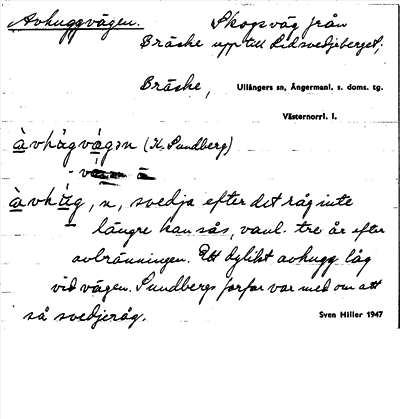 Avhuggvägen. Skogsväg från
Bräcke upp till Lidsvedjeberget.
Bräcke, Ullångers sn, Ångermanl. s. doms. tg.
Västernorrl. l.
àvhùgvǻgən (K. Sundberg)
àvhùg, n, svedja efter det råg inte
längre kan sås, vanl. tre år efter
avbränningen. Ett dylikt avhugg låg
vid vägen. Sundbergs farfar var med om att
så svedjeråg.
Sven Hiller 1947